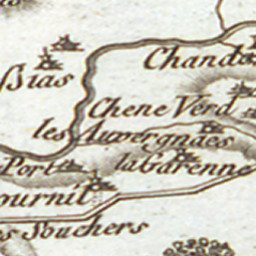 Chando
Bias
Chene Verd
les Auvergnaes
Port
la Garenne
ournil
es Souchers